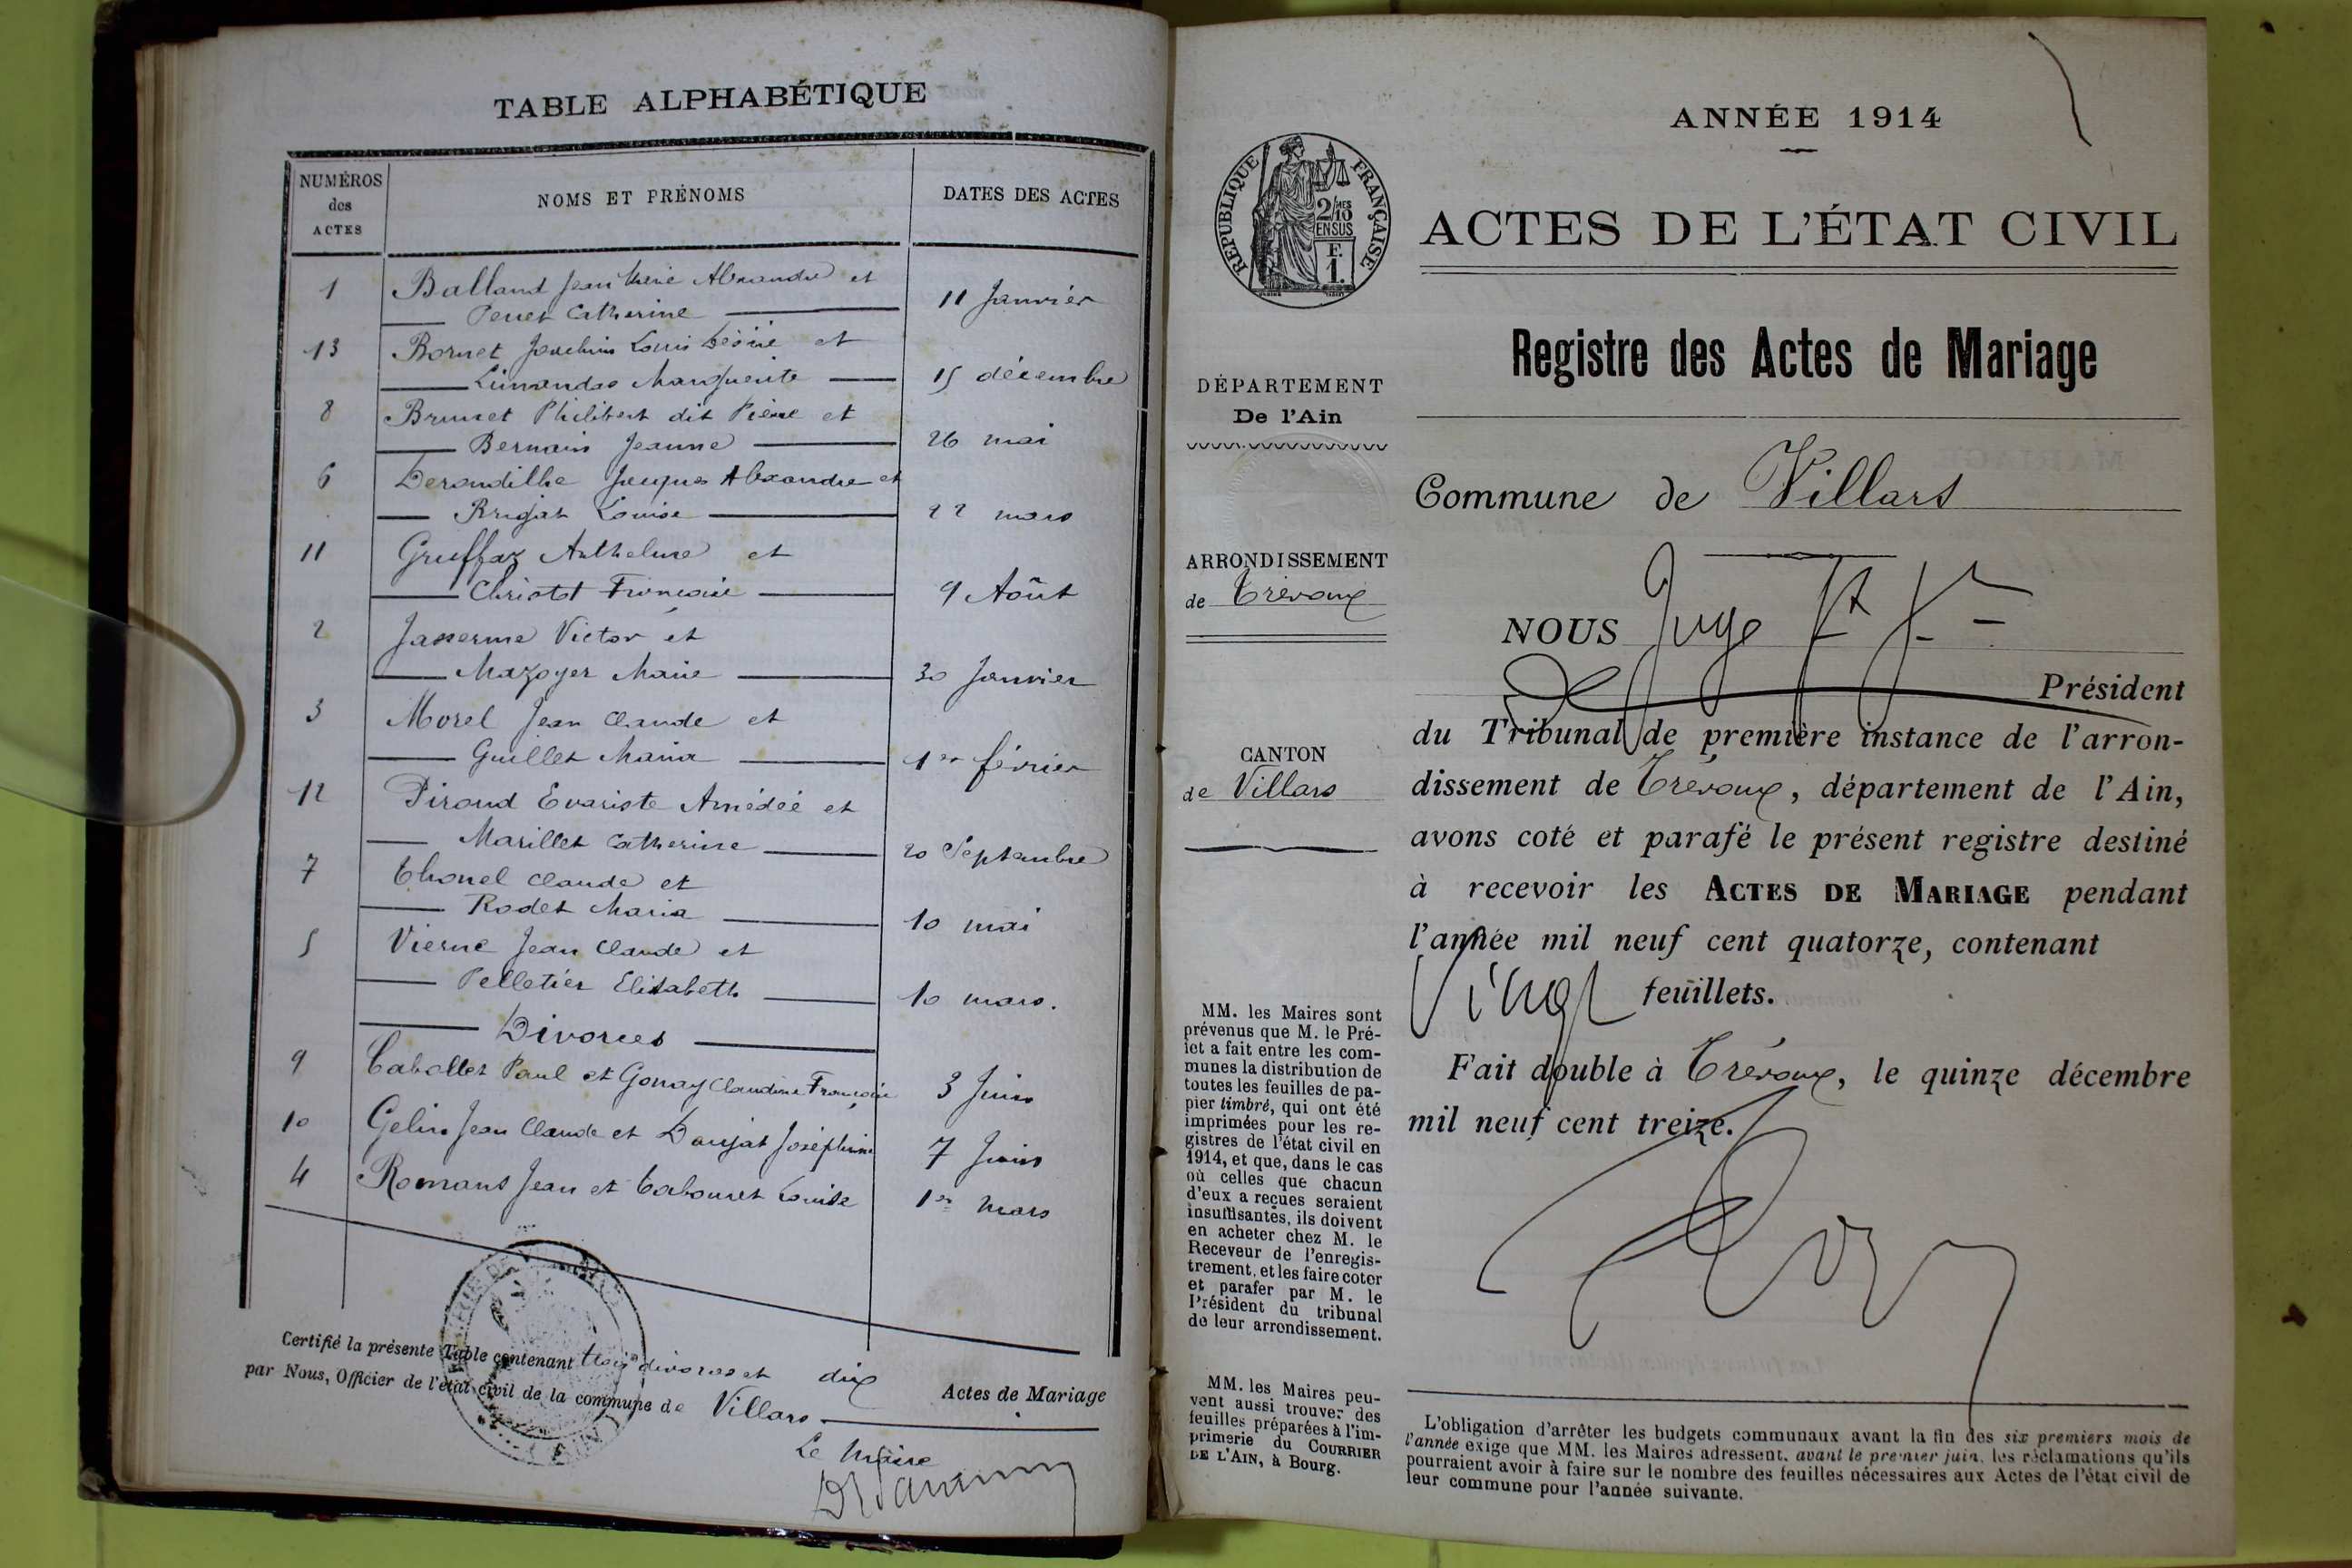 TABLE ALPHABÉTIQUE
NUMÉROS
des
ACTES
NOMS ET PRÉNOMS
DATES DES ACTES
1 Balland Jean Marie Alexandre et
Perret Catherine 11 Janvier
13 Bornet Joachim Louis et
Marguerite 15 décembre
8 Brunet Philibert dit Pierre et
Bernain Jeanne 26 mai
6 Derondilhe Jacques Alexandre et
Brigat Louise 22 mars
11 Gruffaz Anthelme et
Christot Françoise 9 Août
2 Jasserme Victor et
Mazoyer Marie 30 Janvier
3 Morel Jean Claude et
Guillet Maria 1er février
12 Piroud Evariste Amédéé et
Marillet Catherine 20 Septembre
7 Thonel Claude et
Rodet Maria 10 mai
5 Vierne Jean Claude et
Pelletier Elisabeth 10 mars.
Divorces
9 Cabollet Paul et Gonay Claudine Françoise 3 Juin
10 Gelin Jean Claude et Daujat Joséphine 7 Juin
4 Romans Jean et Tabouret Louise 1er mars
Certifié la présente Table contenant trois divorces et dix Actes de Mariage
par Nous, Officier de l'état civil de la commune de Villars
Le Maire
ANNÉE 1914
RÉPUBLIQUE FRANÇAISE
2/10 MES
EN SUS
F.
1.
ACTES DE L'ÉTAT CIVIL
Registre des Actes de Mariage
DÉPARTEMENT
De l'Ain
Commune de Villars
ARRONDISSEMENT
de Trévoux
NOUS Juge
Président
du Tribunal de première instance de l'arron-
CANTON
de Villars
dissement de Trévoux, département de l'Ain,
avons coté et parafé le présent registre destiné
à recevoir les ACTES DE MARIAGE pendant
l'année mil neuf cent quatorze, contenant
Vingt feuillets.
Fait double à Trévoux, le quinze décembre
mil neuf cent treize.
MM. les Maires sont
prévenus que M. le Pré-
fet a fait entre les com-
munes la distribution de
toutes les feuilles de pa-
pier timbré, qui ont été
imprimées pour les re-
gistres de l'état civil en
1914, et que, dans le cas
où celles que chacun
d'eux a reçues seraient
insuffisantes, ils doivent
en acheter chez M. le
Receveur de l'enregis-
trement, et les faire coter
et parafer par M. le
Président du tribunal
de leur arrondissement.
MM. les Maires peu-
vent aussi trouver des
feuilles préparées à l'im-
primerie du COURRIER
DE L'AIN, à Bourg.
L'obligation d'arrêter les budgets communaux avant la fin des six premiers mois de
l'année exige que MM. les Maires adressent, avant le premier juin, les réclamations qu'ils
pourraient avoir à faire sur le nombre des feuilles nécessaires aux Actes de l'état civil de
leur commune pour l'année suivante.